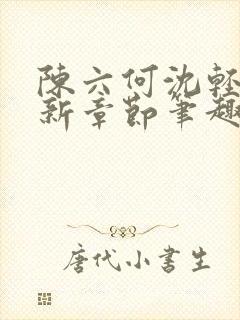 陳六何沈輕
新章節筆趣
唐代小書生